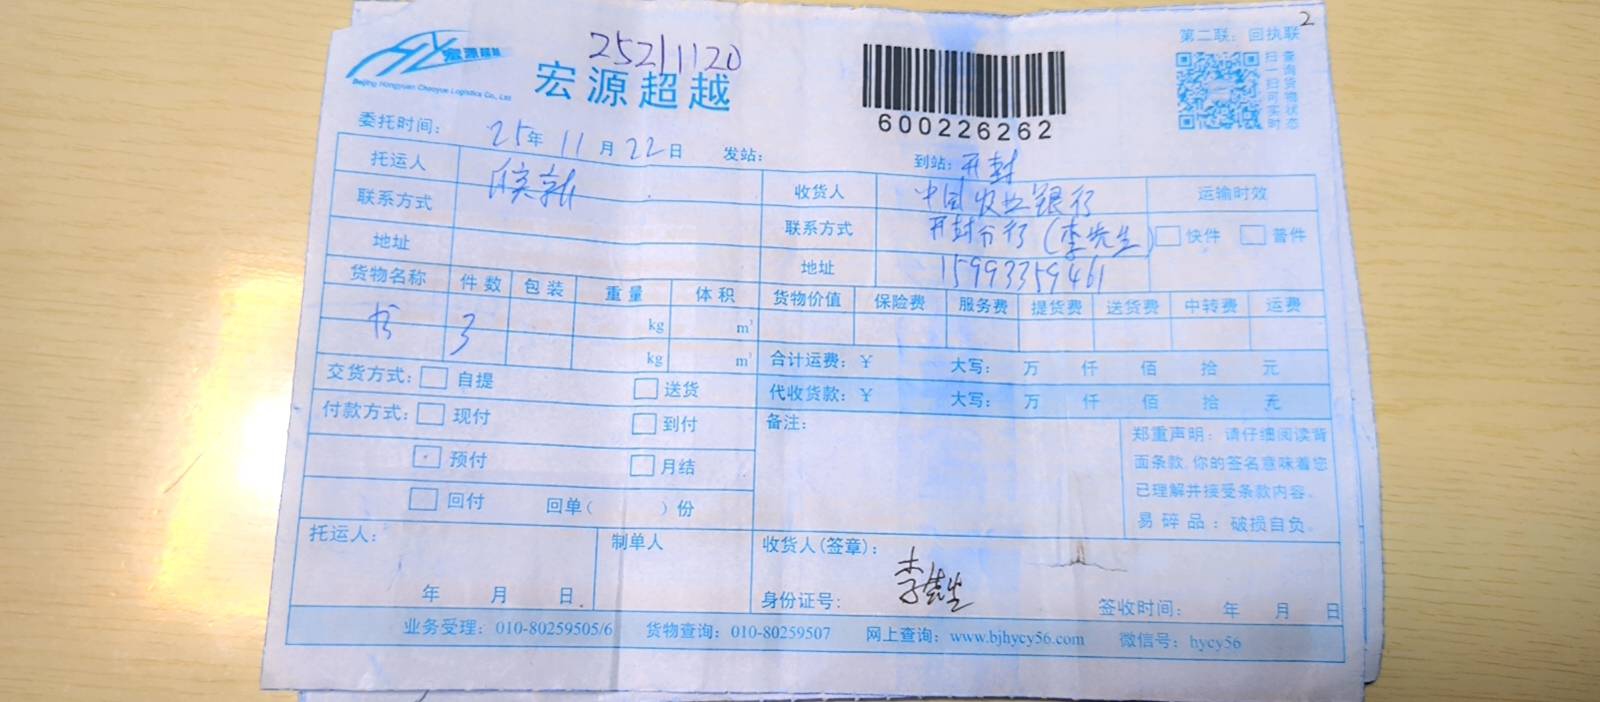 2
25211120
宏源超越
Beijing Hongyuan Chaoyue Logistics Co., Ltd
宏源超越
600226262
第二联：回执联
扫一扫可实时
查询货物状态
委托时间： 25年 11月 22日 发站： 到站：开封
托运人 皖新 收货人 中国农业银行 运输时效
联系方式 联系方式 开封分行（李先生） 快件 普件
地址 地址 15993359461
货物名称 件数 包装 重量 体积 货物价值 保险费 服务费 提货费 送货费 中转费 运费
书 3 kg m³
kg m³ 合计运费：￥ 大写： 万 仟 佰 拾 元
交货方式： 自提 送货 代收货款：￥ 大写： 万 仟 佰 拾 元
付款方式： 现付 到付 备注：
预付 月结
回付 回单（ ）份
郑重声明：请仔细阅读背
面条款,你的签名意味着您
已理解并接受条款内容。
易碎品：破损自负。
托运人： 制单人 收货人(签章)： 李先生
年 月 日 身份证号： 签收时间： 年 月 日
业务受理：010-80259505/6 货物查询：010-80259507 网上查询：www.bjhycy56.com 微信号：hycy56